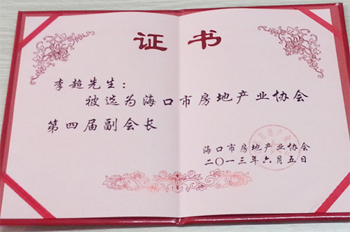 证书
李超先生：
被选为海口市房地产业协会
第四届副会长
海口市房地产业协会
二〇一三年六月五日